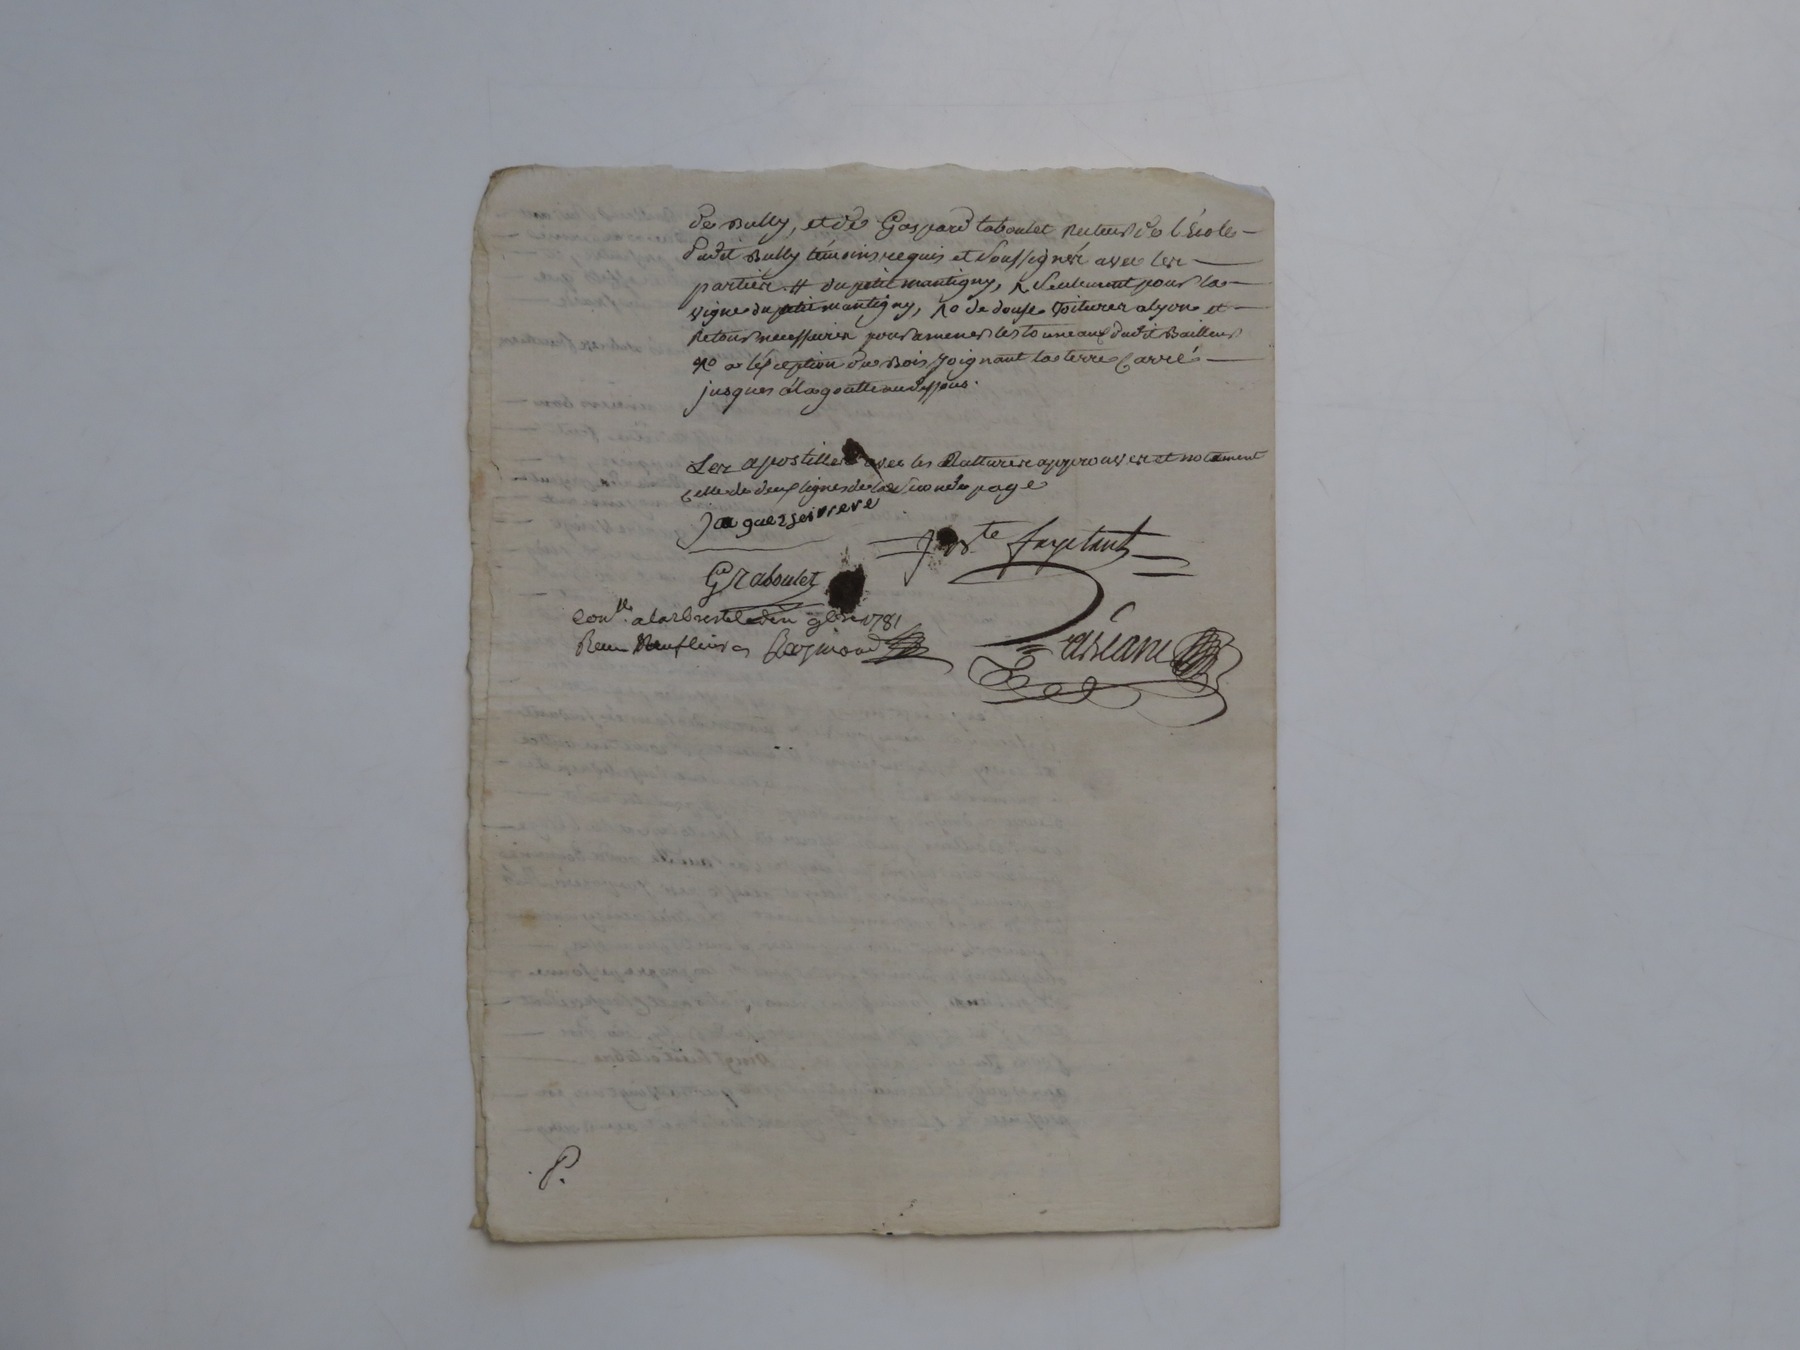 de Bully, et de Gaspard taboulet Recteur de l'École
dudit Bully témoins requis et soussignés avec les
parties # du petit mantigny, seulement pour la
vigne du petit mantigny, No de douse voitures a lyon et
Retour necessaires pour amener les tonneaux dudit Bailleur
No a léxception du Bois joignant la terre Carré
jusques a la goutte au dessous.
Les apostilles avec les Ratures approuvés et notament
celle de deux lignes de la Seconde page
jaques
fayetant
G Taboulet
con.lle a larbresle le 9bre 1781
Reçu neuf livres
P.